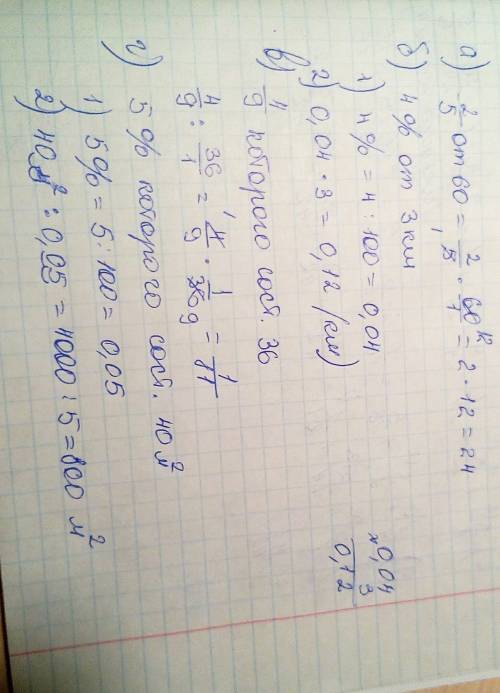 а) 2/5 от 60 = 2/5 · 60/1 = 2 · 12 = 24
б) 4% от 3 км
1) 4% = 4 : 100 = 0,04
2) 0,04 · 3 = 0,12 (км)
× 0,04
3
0,12
в) 4/9 которого сост. 36
4/9 : 36/1 = 4/9 · 1/36 =
г) 5% которого сост. 40 м²
1) 5% = 5 : 100 = 0,05
2) 40 м² : 0,05 = 4000 : 5 = 800 м²